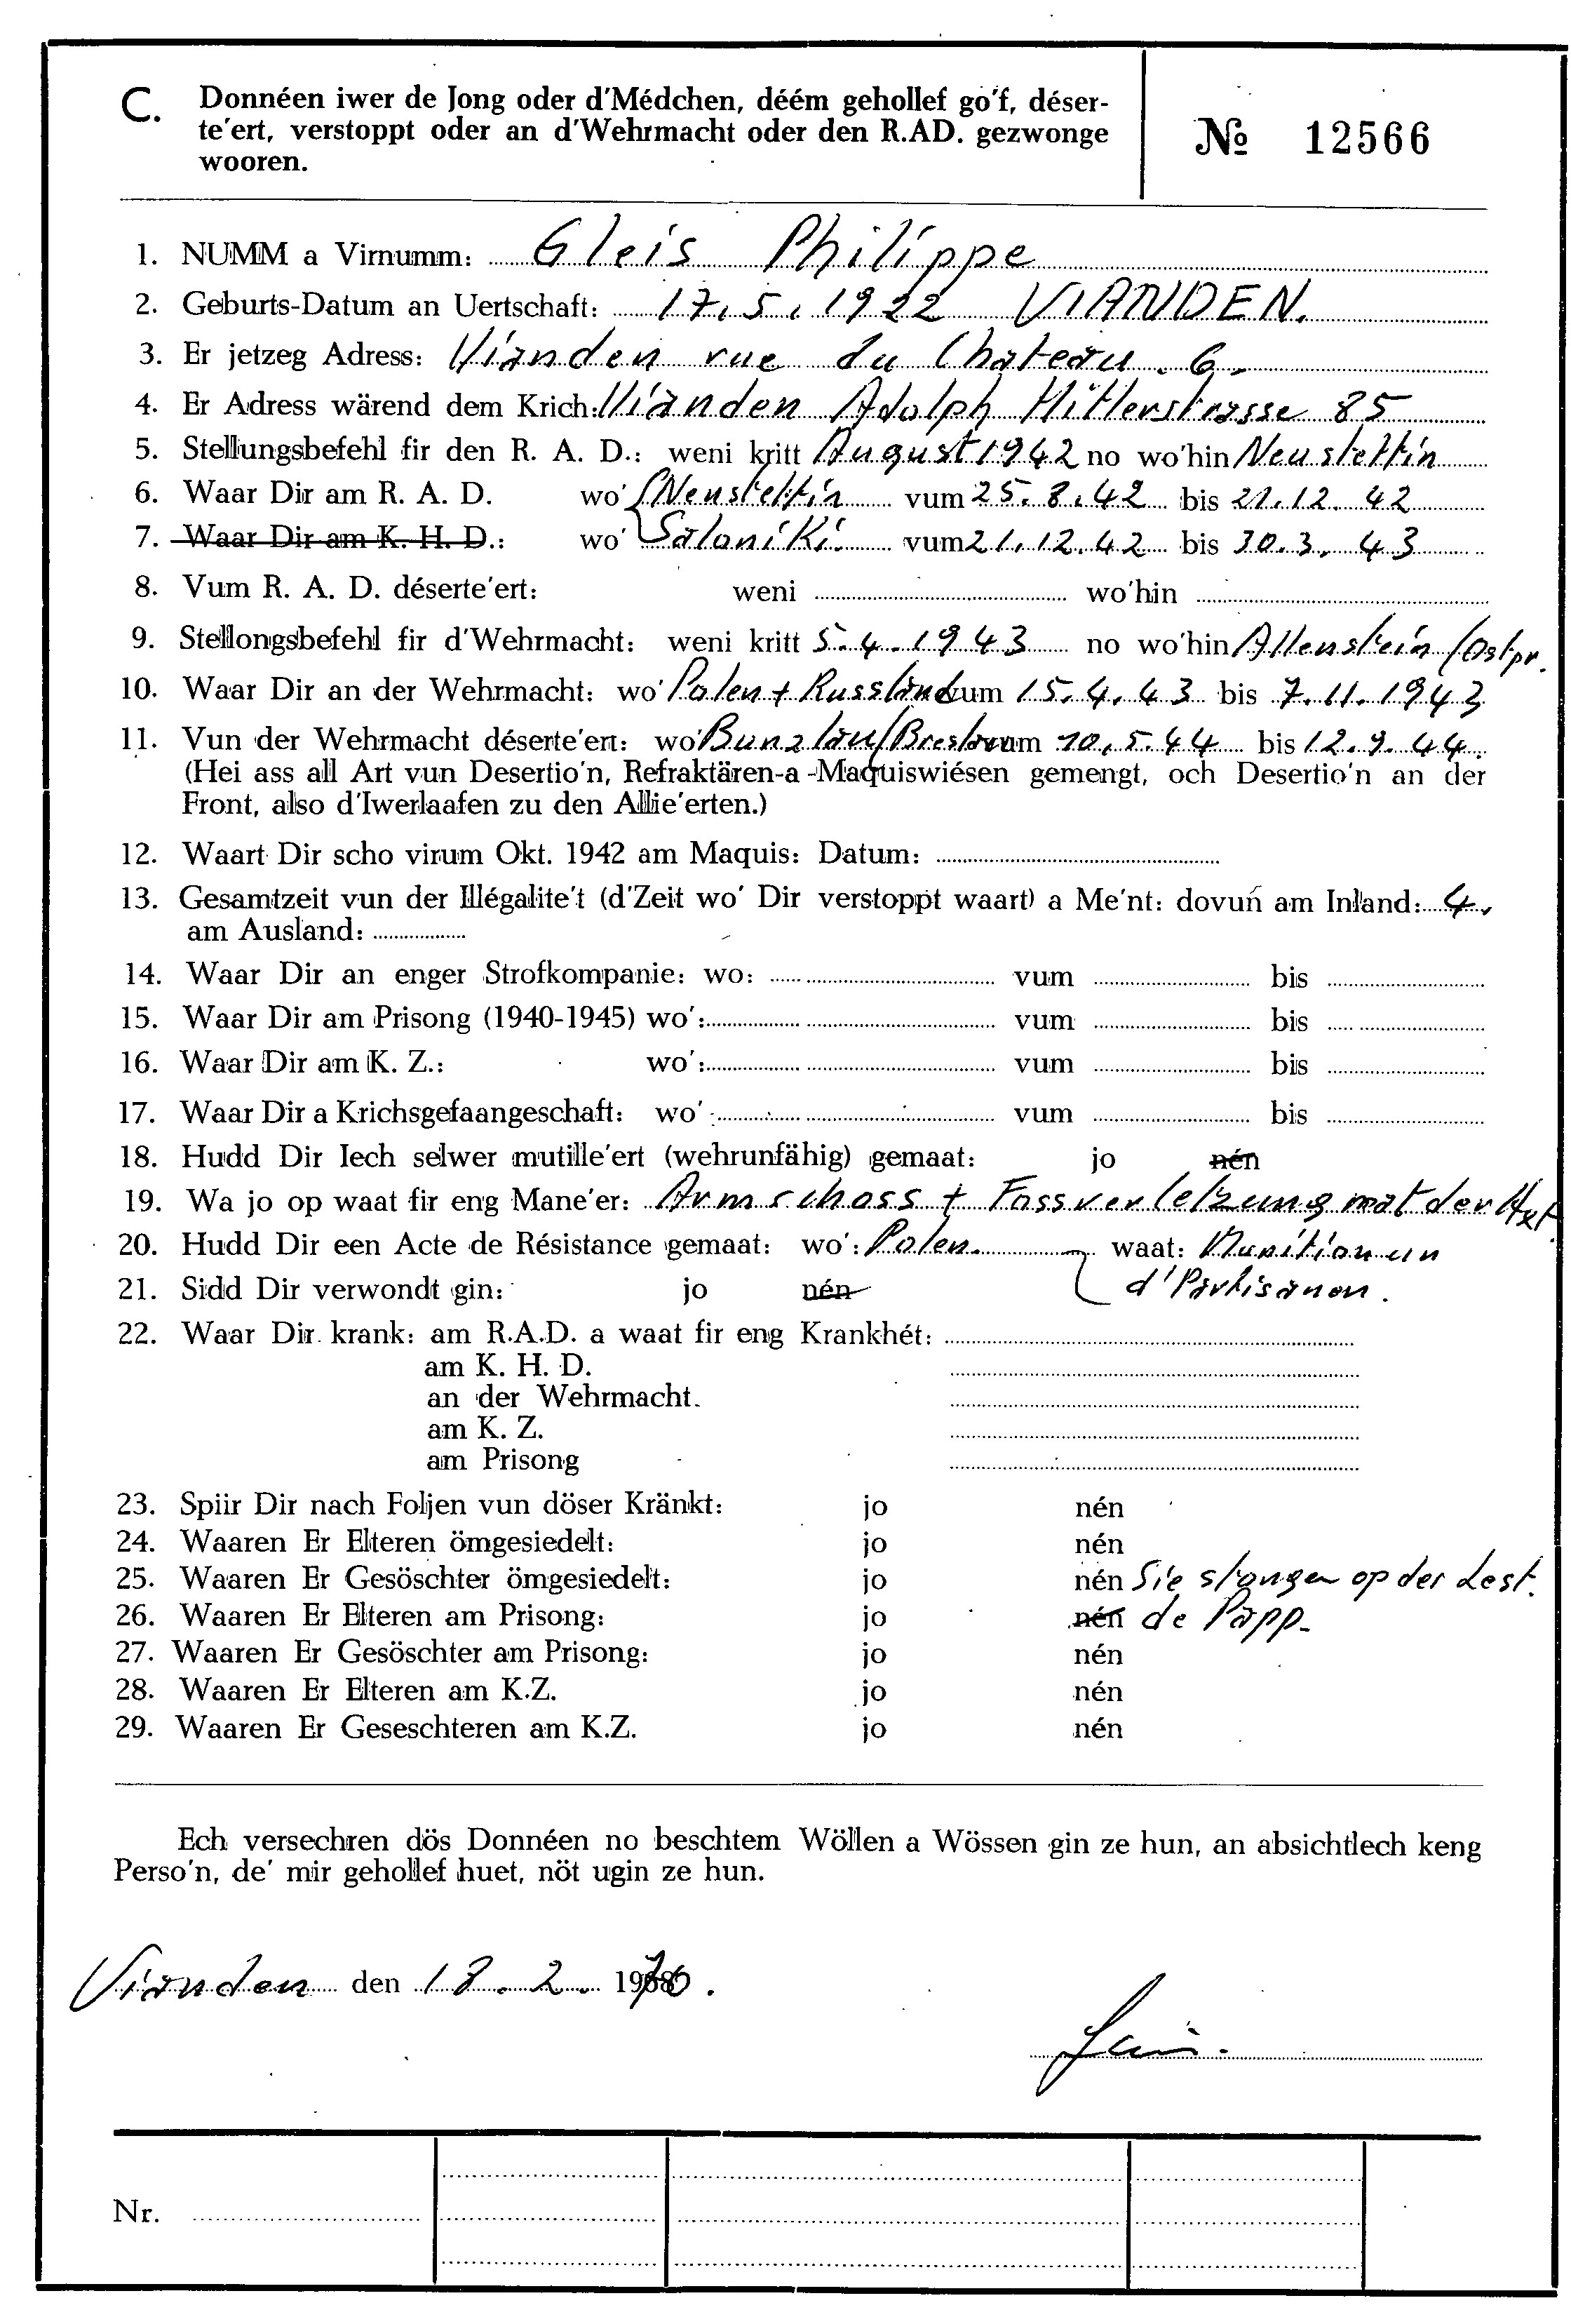 C. Donnéen iwer de Jong oder d'Médchen, déém gehollef go'f, déser-
te'ert, verstoppt oder an d'Wehrmacht oder den R.AD. gezwonge
wooren.
№ 12566
1. NUMM a Virnumm: Gleis Philippe
2. Geburts-Datum an Uertschaft: 17.5.1922 VIANDEN.
3. Er jetzeg Adress: Vianden rue du Chateau. 6.
4. Er Adress wärend dem Krich: Vianden Adolph Hitlerstrasse 85
5. Stellungsbefehl fir den R. A. D.: weni kritt August 1942 no wo'hin Neustettin
6. Waar Dir am R. A. D. wo' Neustettin vum 25.8.42 bis 21.12.42
7. Waar Dir am K. H. D.: wo' Saloniki. vum 21.12.42 bis 30.3.43
8. Vum R. A. D. déserte'ert: weni wo'hin
9. Stellongsbefehl fir d'Wehrmacht: weni kritt 5.4.1943 no wo'hin Allenstein/Ostpr.
10. Waar Dir an der Wehrmacht: wo' Polen + Russland vum 15.4.43 bis 7.11.1943
11. Vun der Wehrmacht déserte'ert: wo' Bunzlau/Breslau vum 10.5.44 bis 12.9.44.
(Hei ass all Art vun Desertio'n, Refraktären-a-Maquiswiésen gemengt, och Desertio'n an der
Front, also d'Iwerlaafen zu den Allie'erten.)
12. Waart Dir scho virum Okt. 1942 am Maquis: Datum:
13. Gesamtzeit vun der Illégalite't (d'Zeit wo' Dir verstoppt waart) a Me'nt: dovun am Inland: 4.
am Ausland:
14. Waar Dir an enger Strofkompanie: wo: vum bis
15. Waar Dir am Prisong (1940-1945) wo': vum bis
16. Waar Dir am K. Z.: wo': vum bis
17. Waar Dir a Krichsgefaangeschaft: wo': vum bis
18. Hudd Dir Iech selwer mutille'ert (wehrunfähig) gemaat: jo nén
19. Wa jo op waat fir eng Mane'er: Armschoss + Fossverletzung mat der Axt.
20. Hudd Dir een Acte de Résistance gemaat: wo': Polen. waat: Munition un
d'Partisanen.
21. Sidd Dir verwondt gin: jo nén
22. Waar Dir krank: am R.A.D. a waat fir eng Krankhét:
am K. H. D.
an der Wehrmacht.
am K. Z.
am Prisong
23. Spiir Dir nach Foljen vun döser Kränkt: jo nén
24. Waaren Er Elteren ömgesiedelt: jo nén
25. Waaren Er Gesöschter ömgesiedelt: jo nén Sie stongen op der Lest.
26. Waaren Er Elteren am Prisong: jo nén de Papp.
27. Waaren Er Gesöschter am Prisong: jo nén
28. Waaren Er Elteren am K.Z. jo nén
29. Waaren Er Geseschteren am K.Z. jo nén
Ech versechren dös Donnéen no beschtem Wöllen a Wössen gin ze hun, an absichtlech keng
Perso'n, de' mir gehollef huet, nöt ugin ze hun.
Vianden den 18.2. 1970.
Nr.